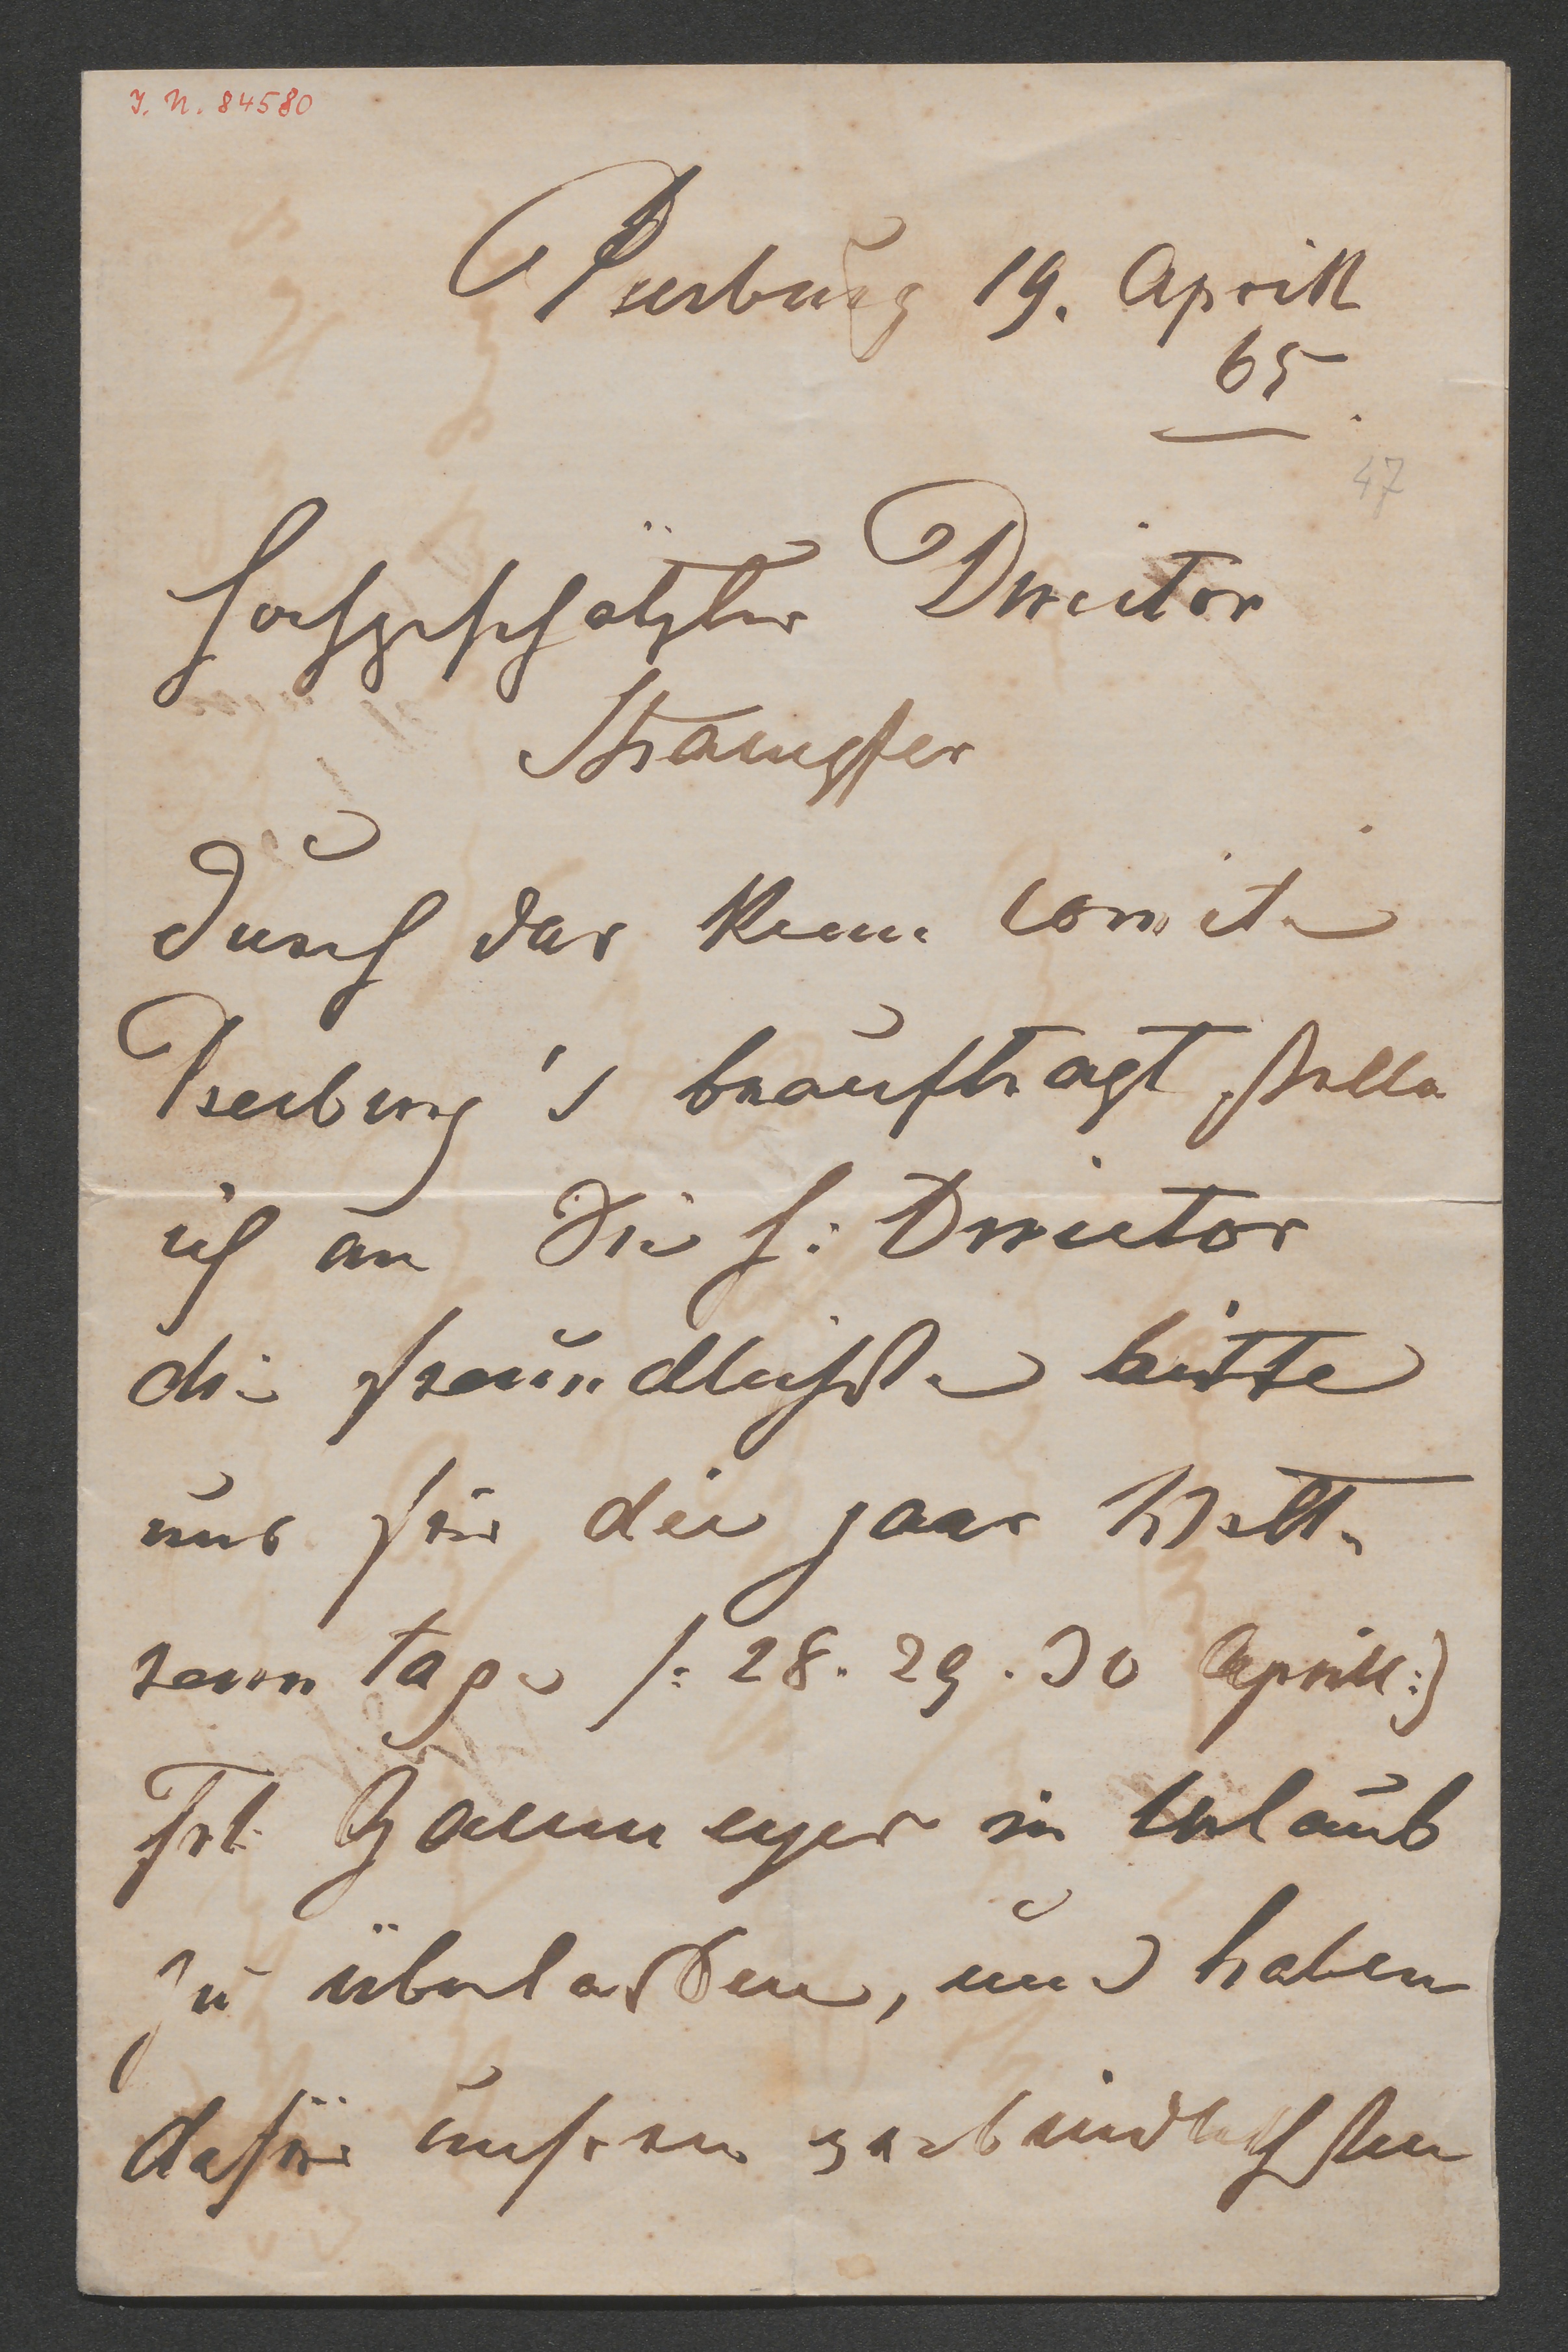 I. N. 84580
Presburg 19. Aprill
65
47
Hochgeschätzter Director
Strampfer
Durch das Renn Comite
Presburg's beauftragt stelle
ich an Sie H: Director
die freundlichste bitte
uns für die paar Wett-
renn tage /: 28. 29. 30 Aprill :)
Frl: Gallmeyer in Urlaub
zu überlassen, und haben
dafür unseren verbindlichsten